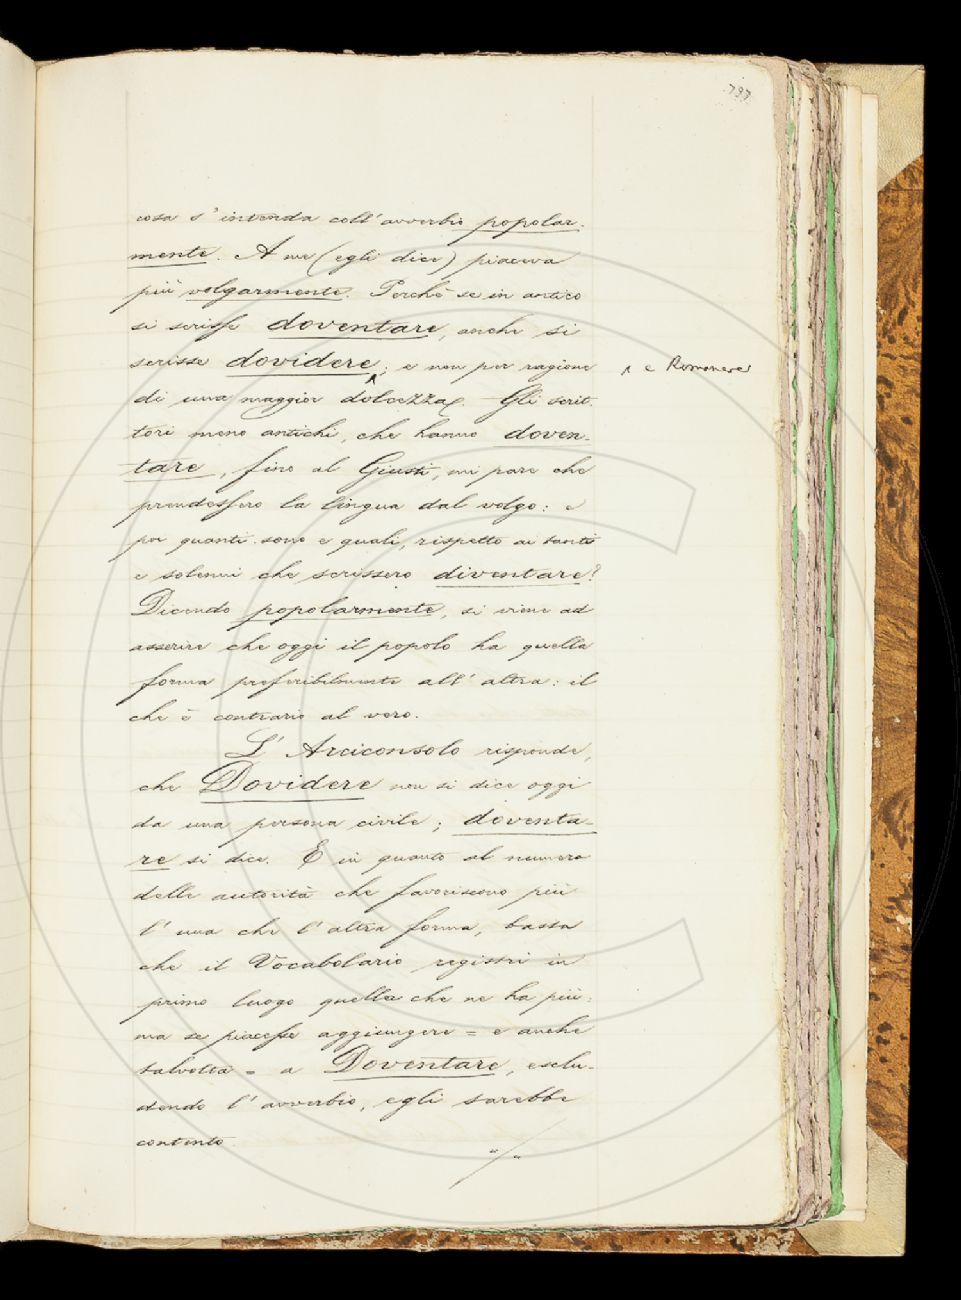 797
cosa s'intenda coll'avverbio popolar-
mente. A me (egli dice) piaceva
più volgarmente. Perchè se in antico
si scrisse doventare, anche si
scrisse dovidere ; e non per ragione
^ e Romanere
di una maggior dolcezza. Gli scrit-
tori meno antichi, che hanno doven-
tare, fino al Giusti, mi pare che
prendessero la lingua dal volgo: e
poi quanti sono e quali, rispetto ai tanti
e solenni che scrissero diventare?
Dicendo popolarmente, si viene ad
asserire che oggi il popolo ha quella
forma preferibilmente all'altra: il
che è contrario al vero.
L'Arciconsolo risponde,
che Dovidere non si dice oggi
da una persona civile; doventa-
re si dice. E in quanto al numero
delle autorità che favoriscono più
l'una che l'altra forma, basta
che il Vocabolario registri in
primo luogo quella che ne ha più:
ma se piacesse aggiungere = e anche
talvolta = a Doventare, esclu-
dendo l'avverbio, egli sarebbe
contento.